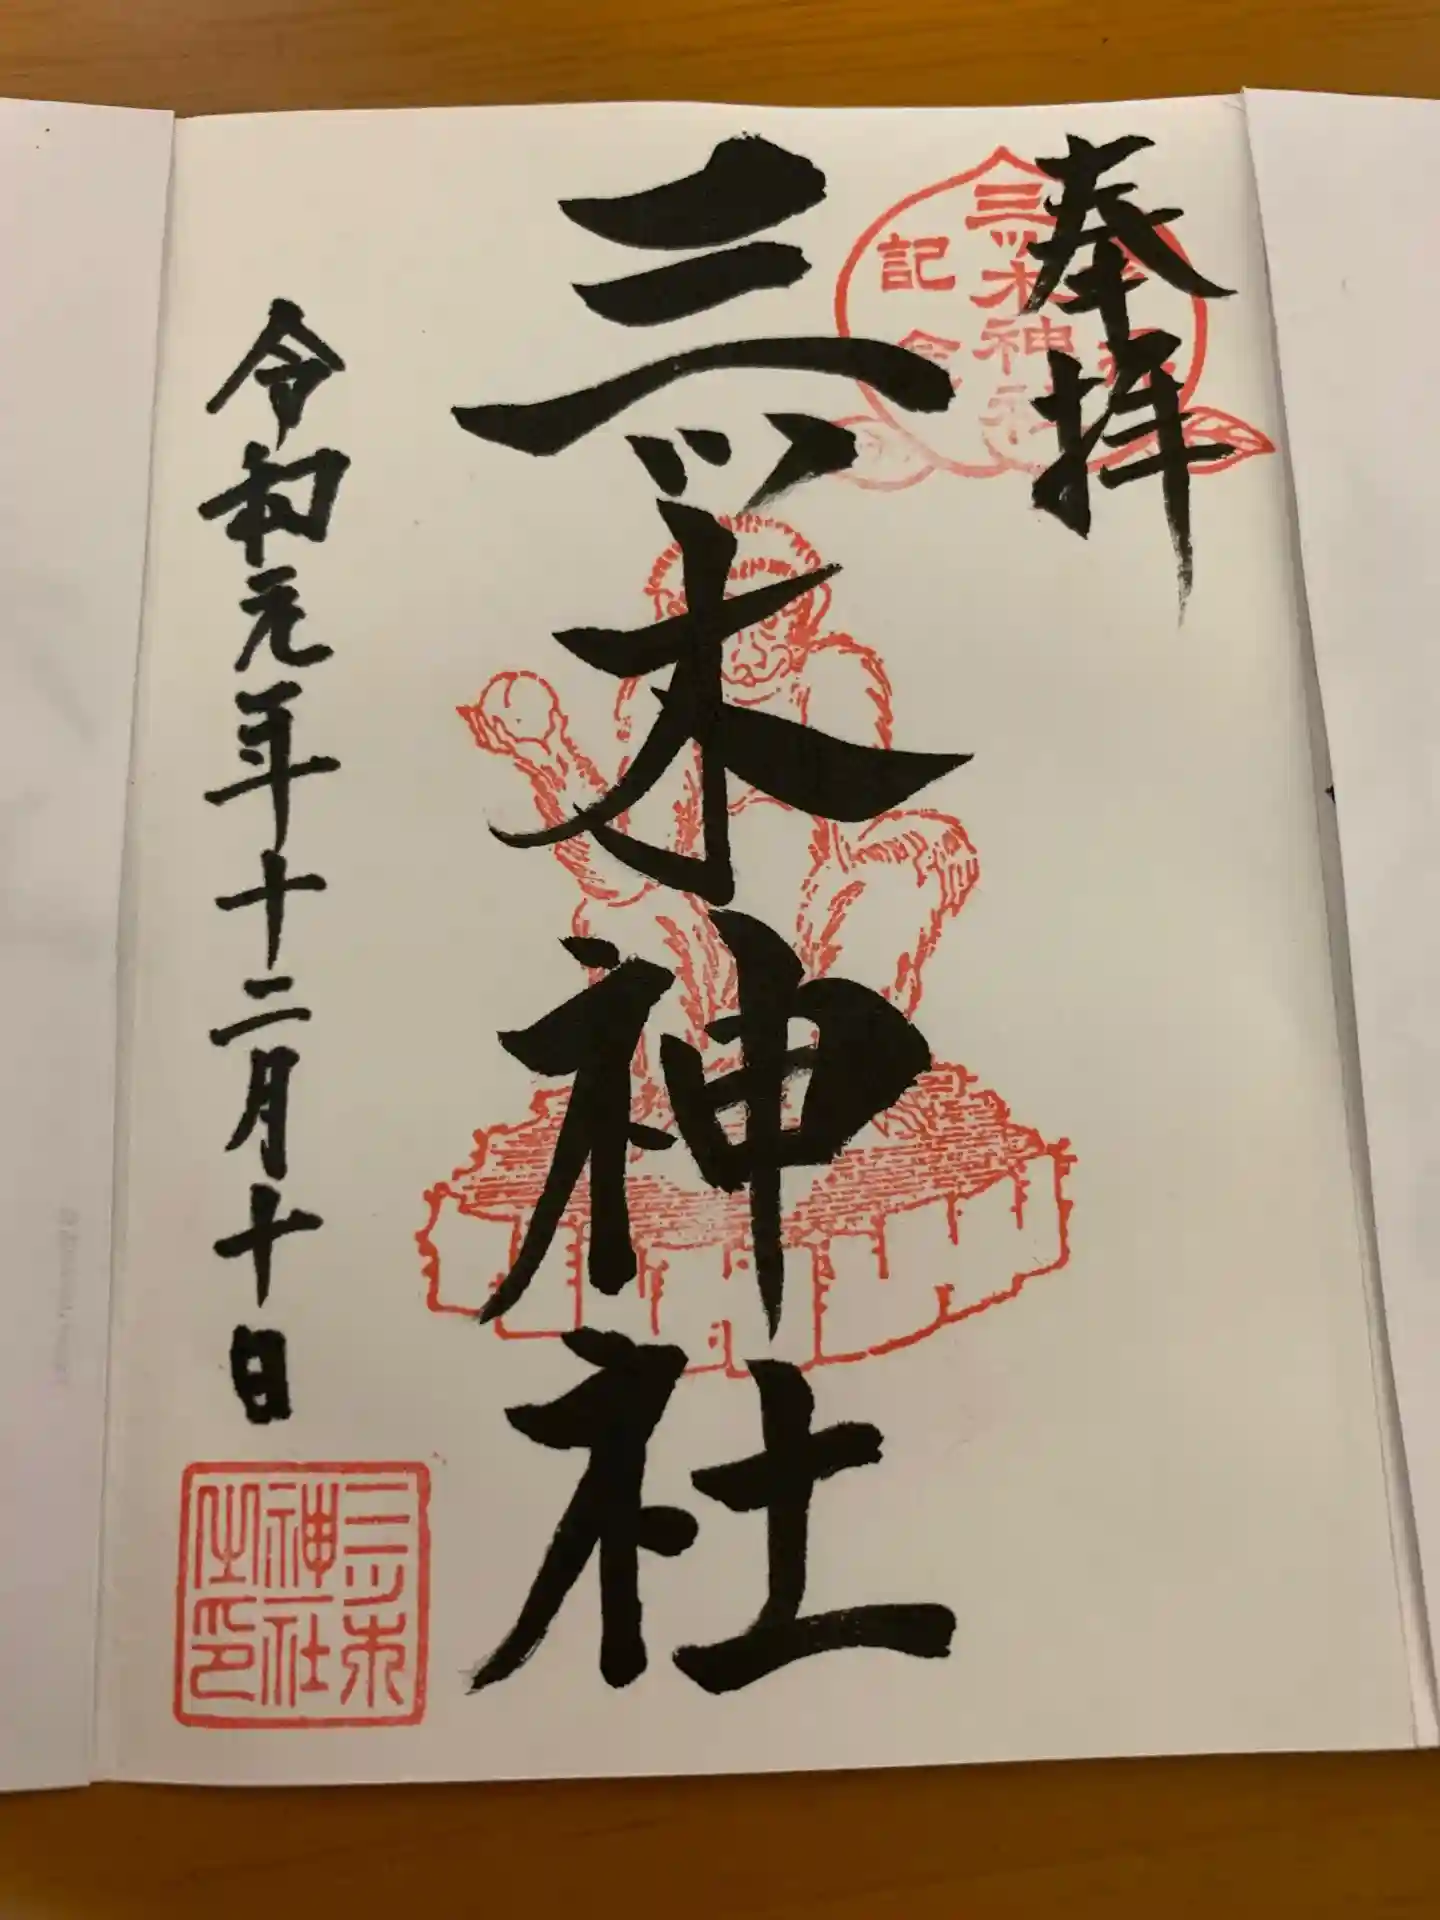 奉拝
三ツ木神社
記念
三ツ木神社
令和元年十二月十日
三ツ木
神社
之印